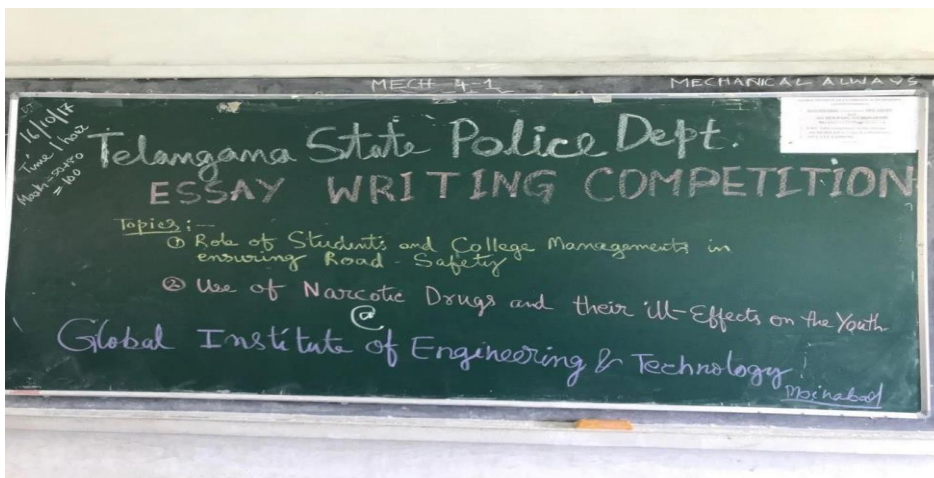 MECH-4-1
MECHANICAL ALWAYS
16/10/17
Time 1 hour
Mark = 50+50
= 100
Telangana State Police Dept.
ESSAY WRITING COMPETITION
Topics :-
① Role of Students and College Managements in
ensuring Road - Safety
② Use of Narcotic Drugs and their ill-Effects on the Youth.
@
Global Institute of Engineering & Technology
Moinabad